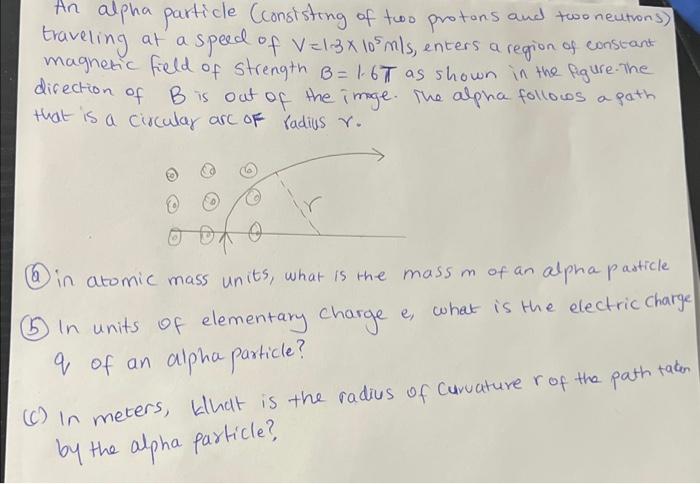 An alpha particle (consisting of two protons and two neutrons)
traveling at a speed of V=1.3 × 10⁵m/s, enters a region of constant
magnetic field of strength B = 1.6T as shown in the figure. The
direction of B is out of the image. The alpha follows a path
that is a circular arc OF radius r.
r
(a) in atomic mass units, what is the mass m of an alpha particle
(5) In units of elementary charge e, what is the electric charge
q of an alpha particle?
(c) In meters, What is the radius of curvature r of the path taken
by the alpha particle?